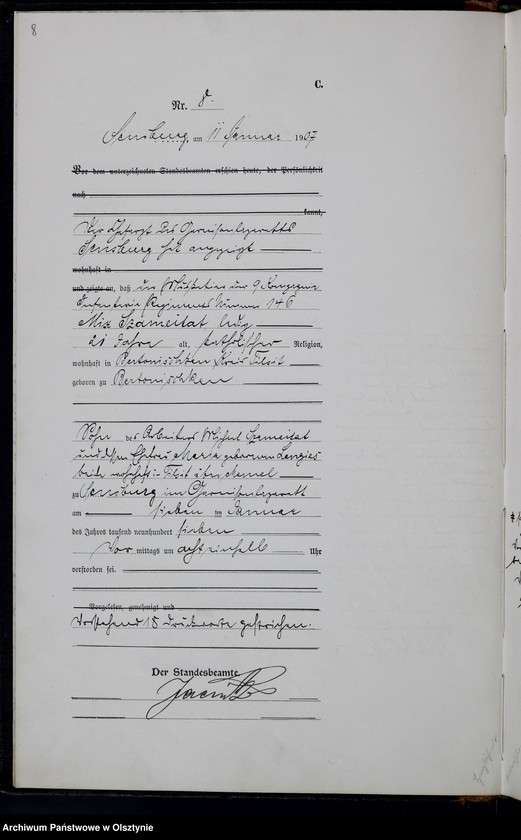 8
C.
Nr. 8.
Sensburg, am 11 Januar 1907
Vor dem unterzeichneten Standesbeamten erschien heute, der Persönlichkeit
nach
kannt,
Der Chefarzt des Garnisonlazaretts
Sensburg hat angezeigt
wohnhaft in
und zeigte an, daß der Musketier der 9 Kompagnie
Infanterie Regiments Nummer 146
Mix Szameitat ledig
21 Jahre alt, katholischer Religion,
wohnhaft in Kreis Tilsit
geboren zu
Sohn des Arbeiters Michel Szameitat
und dessen Ehefrau Maria geborenen
beide wohnhaft in Tilsit
zu Sensburg im Garnisonlazarett
am sieben ten Januar
des Jahres tausend neunhundert sieben
Vor mittags um acht einhalb Uhr
verstorben sei.
Vorgelesen, genehmigt und
Vorstehend 15 Druckworte gestrichen.
Der Standesbeamte
Archiwum Państwowe w Olsztynie